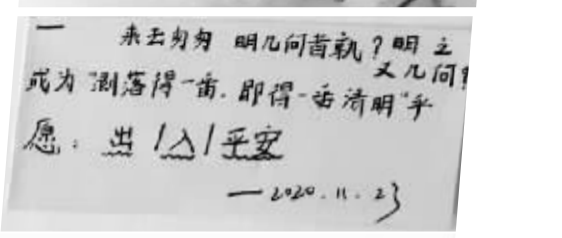 一 来去匆匆 明几何昔孰？明之
又几何？
或为"剥落得一番，即得一番清明"乎
愿：出/入/平安
—2020.11.23